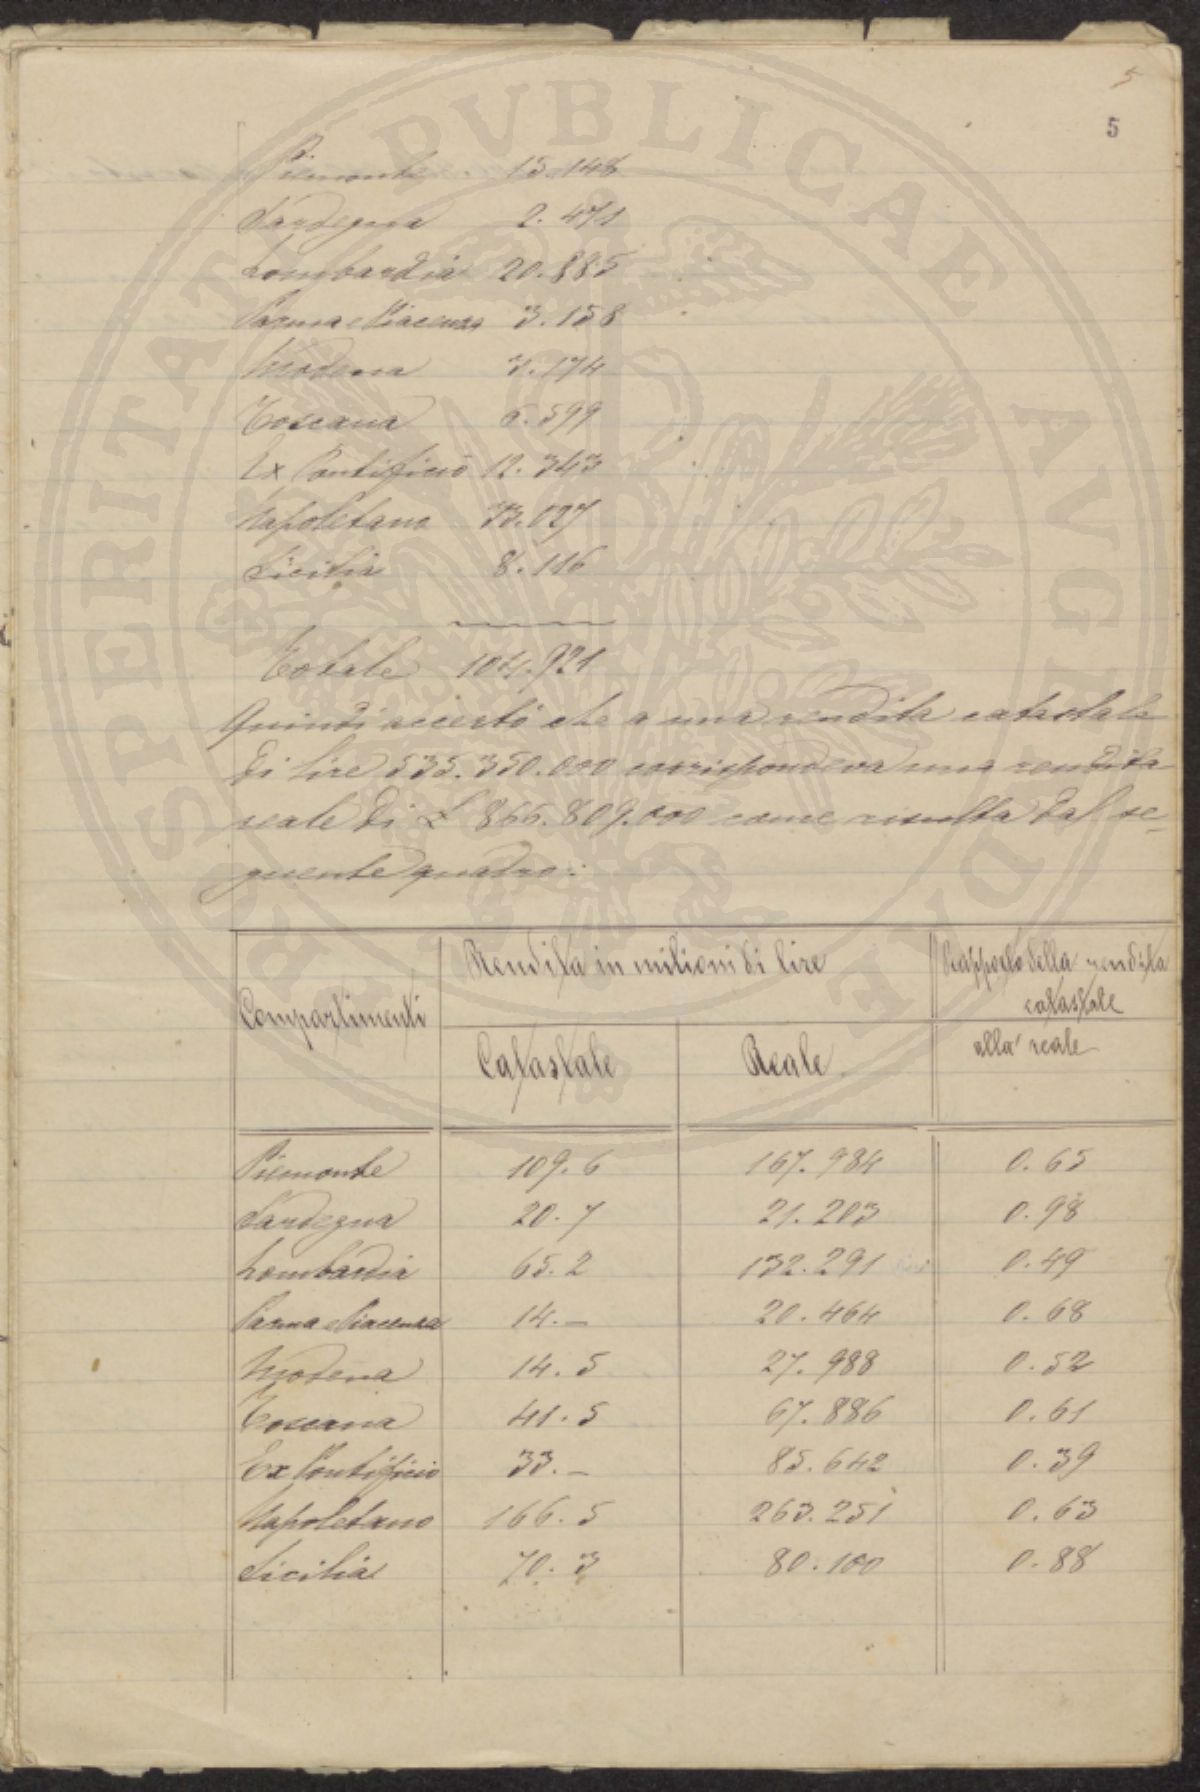 5
5
Piemonte 15.148
Sardegna 2.471
Lombardia 20.885
Parma e Piacenza 3.158
Modena 3.174
Toscana 6.599
Ex Pontificio 12.343
Napoletano 33.027
Sicilia 8.116
Totale 104.921
Quindi accertò che a una rendita catastale
di lire 535.350.000 corrispondeva una rendita
reale di L 866.809.000 come risulta dal se-
guente quadro:
Compartimenti
Rendita in milioni di lire
Rapporto della rendita
catastale
alla reale
Catastale Reale
Piemonte 109.6 167.984 0.65
Sardegna 20.7 21.203 0.98
Lombardia 65.2 132.291 0.49
Parma e Piacenza 14.- 20.464 0.68
Modena 14.5 27.988 0.52
Toscana 41.5 67.886 0.61
Ex Pontificio 33.- 85.642 0.39
Napoletano 166.5 263.251 0.63
Sicilia 70.3 80.100 0.88
PROSPERITATI PVBLICAE AVGENDAE